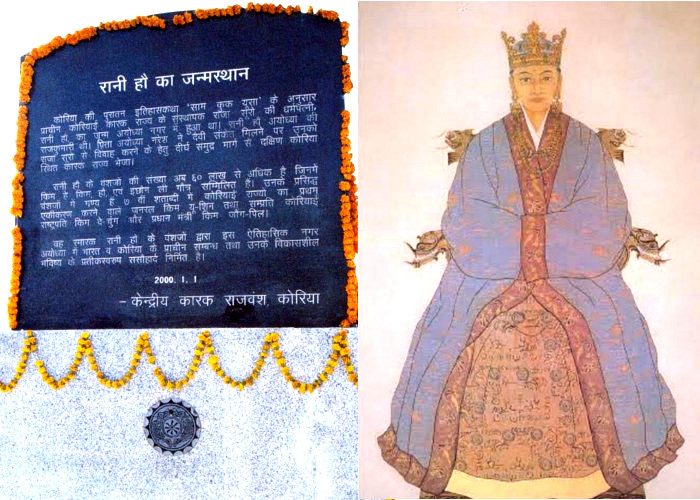 रानी हौ का जन्मस्थान
कोरिया की पुरातन इतिहासकथा 'साम कुक युसा' के अनुसार
प्राचीन कोरियाई कारक राज्य के संस्थापक राजा सुरो की धर्मपत्नी,
रानी हौ, का जन्म अयोध्या नगर में हुआ था। रानी हौ अयोध्या की
राजकुमारी थी। पिता अयोध्या नरेश ने दैवी संकेत मिलने पर उनको
राजा सुरो से विवाह करने के हेतु दीर्घ समुद्र मार्ग से दक्षिण कोरिया
स्थित कारक राज्य भेजा।
रानी हौ के वंशजों की संख्या अब ६० लाख से अधिक है जिनमें
किम हे किम, हौ, एवं इछौन ली गौत्र सम्मिलित है। उनके प्रसिद्ध
वंशजों में गण्य है ७ वीं शताब्दी में कोरियाई राज्यों का प्रथम
एकीकरण करने वाले जनरल किम यू-शिन तथा सम्प्रति कोरियाई
राष्ट्रपति किम दे-जुंग और प्रधान मंत्री किम जौंग-पिल।
यह स्मारक रानी हौ के वंशजों द्वारा इस ऐतिहासिक नगर
अयोध्या में भारत व कोरिया के प्राचीन सम्बन्ध तथा उनके विकासशील
भविष्य के प्रतीकस्वरुप ससौहार्द निर्मित है।
2000. 1. 1
– केन्द्रीय कारक राजवंश, कोरिया